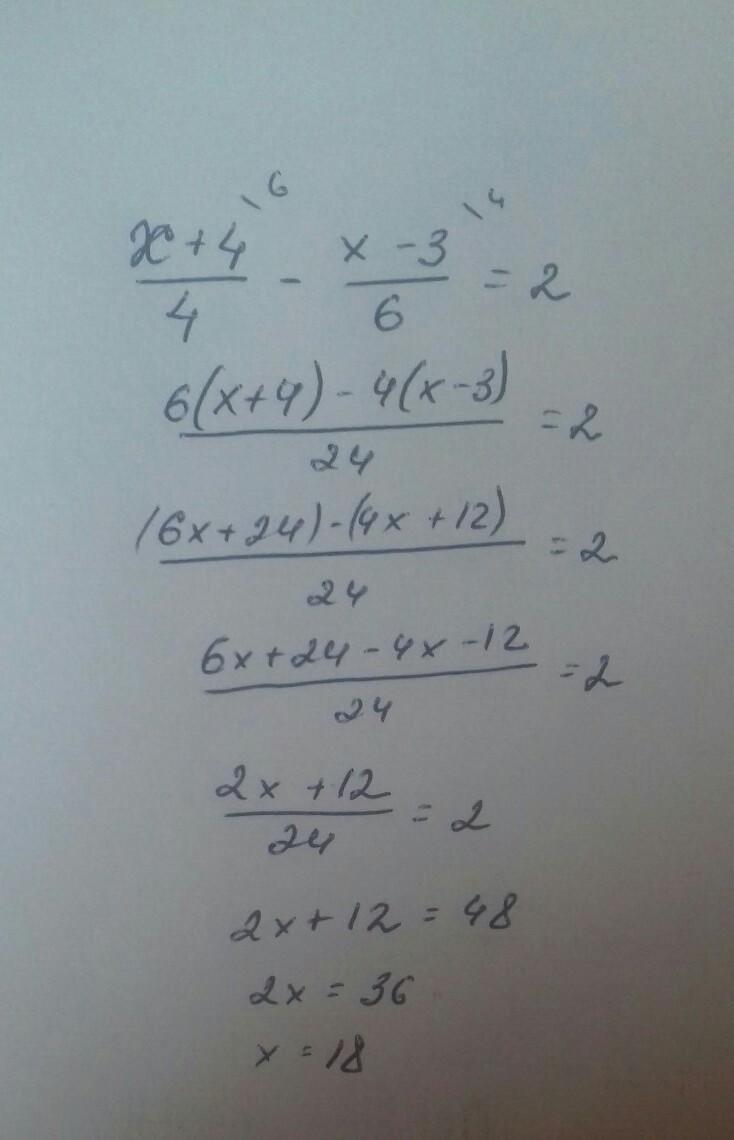 (x+4)/4 \6 - (x-3)/6 \4 = 2
(6(x+4) - 4(x-3))/24 = 2
((6x+24)-(4x+12))/24 = 2
(6x+24-4x-12)/24 = 2
(2x+12)/24 = 2
2x+12 = 48
2x = 36
x = 18